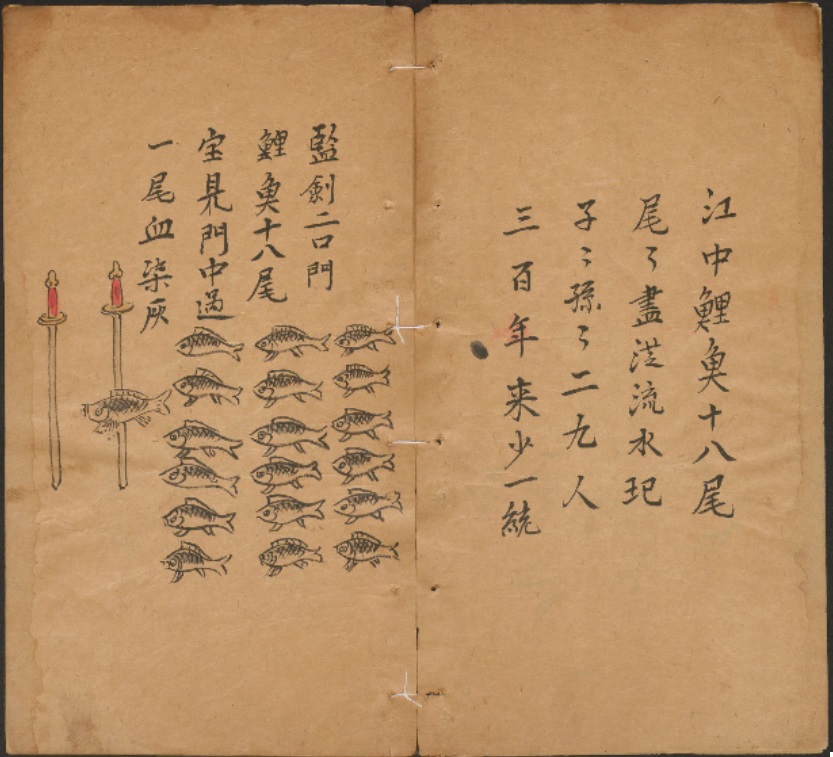 江中鯉魚十八尾
尾々盡淤流水玘
子々孫々二九人
三百年来少一統
監劍二口門
鯉魚十八尾
宝見門中過
一尾血柒灰